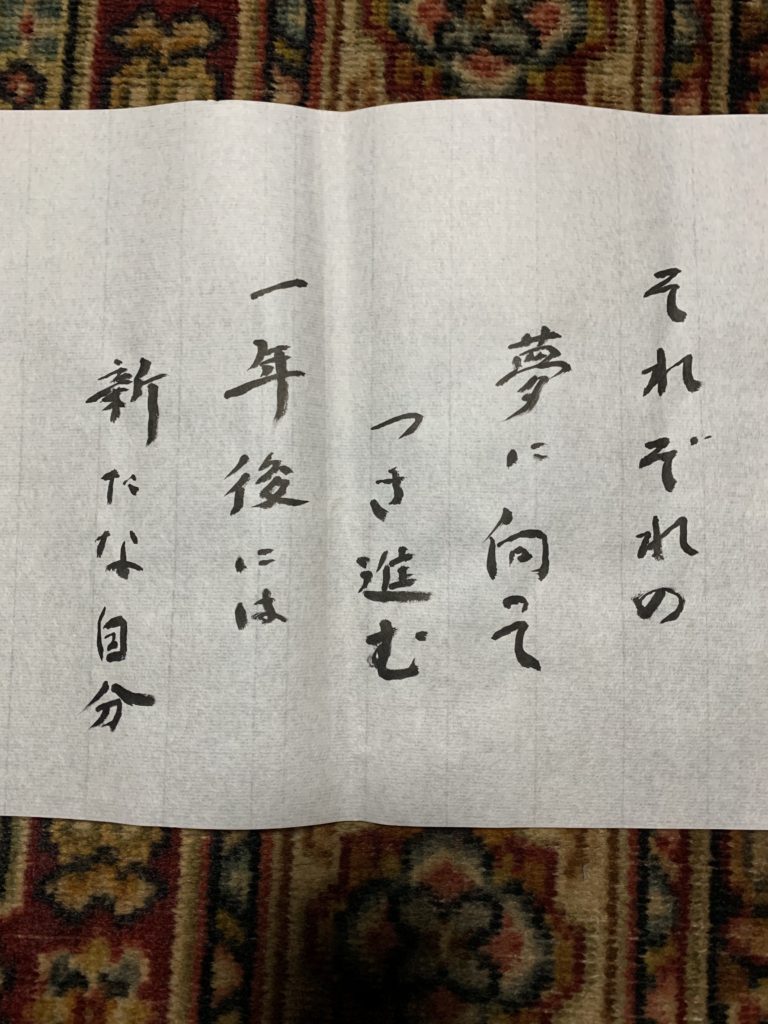 それぞれの
夢に向って
つき進む
一年後には
新たな自分